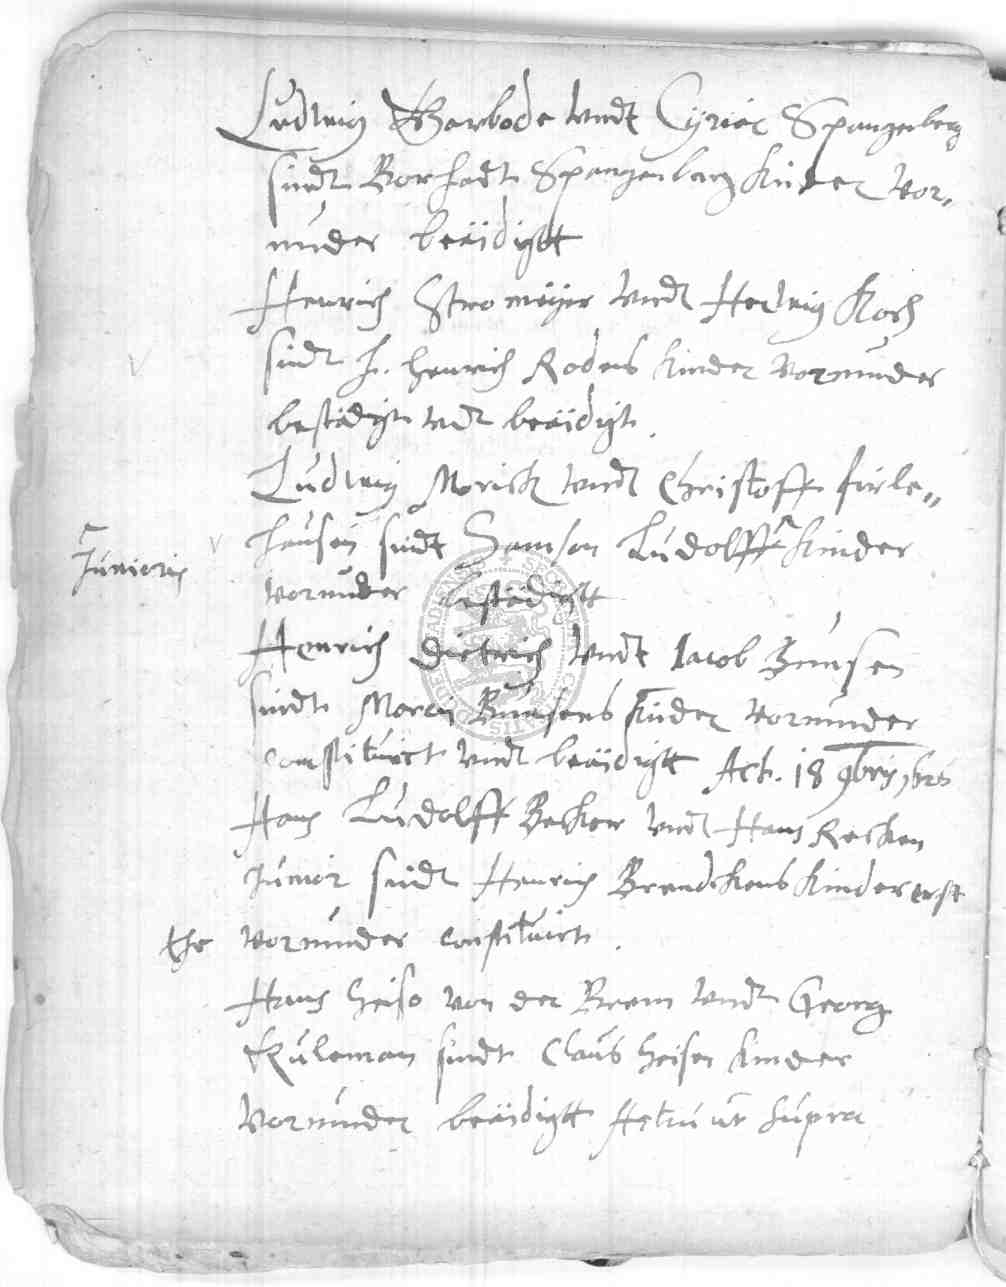 Ludwig Barbode vndt Cyriac Spangenberg
sindt Borhardt Spangenberg Kinder Vor-
münder beäidigtt
Henrich Stromeÿer vndt Hedwig Koch
sindt H. Henrich Rodens Kinder Vormünder
bestädigt vndt beäidigt.
Ludwig Morick vndt Christoff firle-
hausen sindt Samson Ludolffs Kinder
Junioris
vormünder bestädigtt
Henrich Dietrich vndt Jacob Bünsen
sindt Moritz Bünsens Kinder vormünder
constituirt vndt beäidigtt Act. 18 9bris
Hans Ludolff Becker vndt Hans Recken
Junior sindt Henrich Brendekens Kinder
vormünder constituirt.
Hans Heiso von der Brem vndt Georg
Kuleman sindt Claus Heisen Kinder
Vormünder beäidigtt Actu ut supra